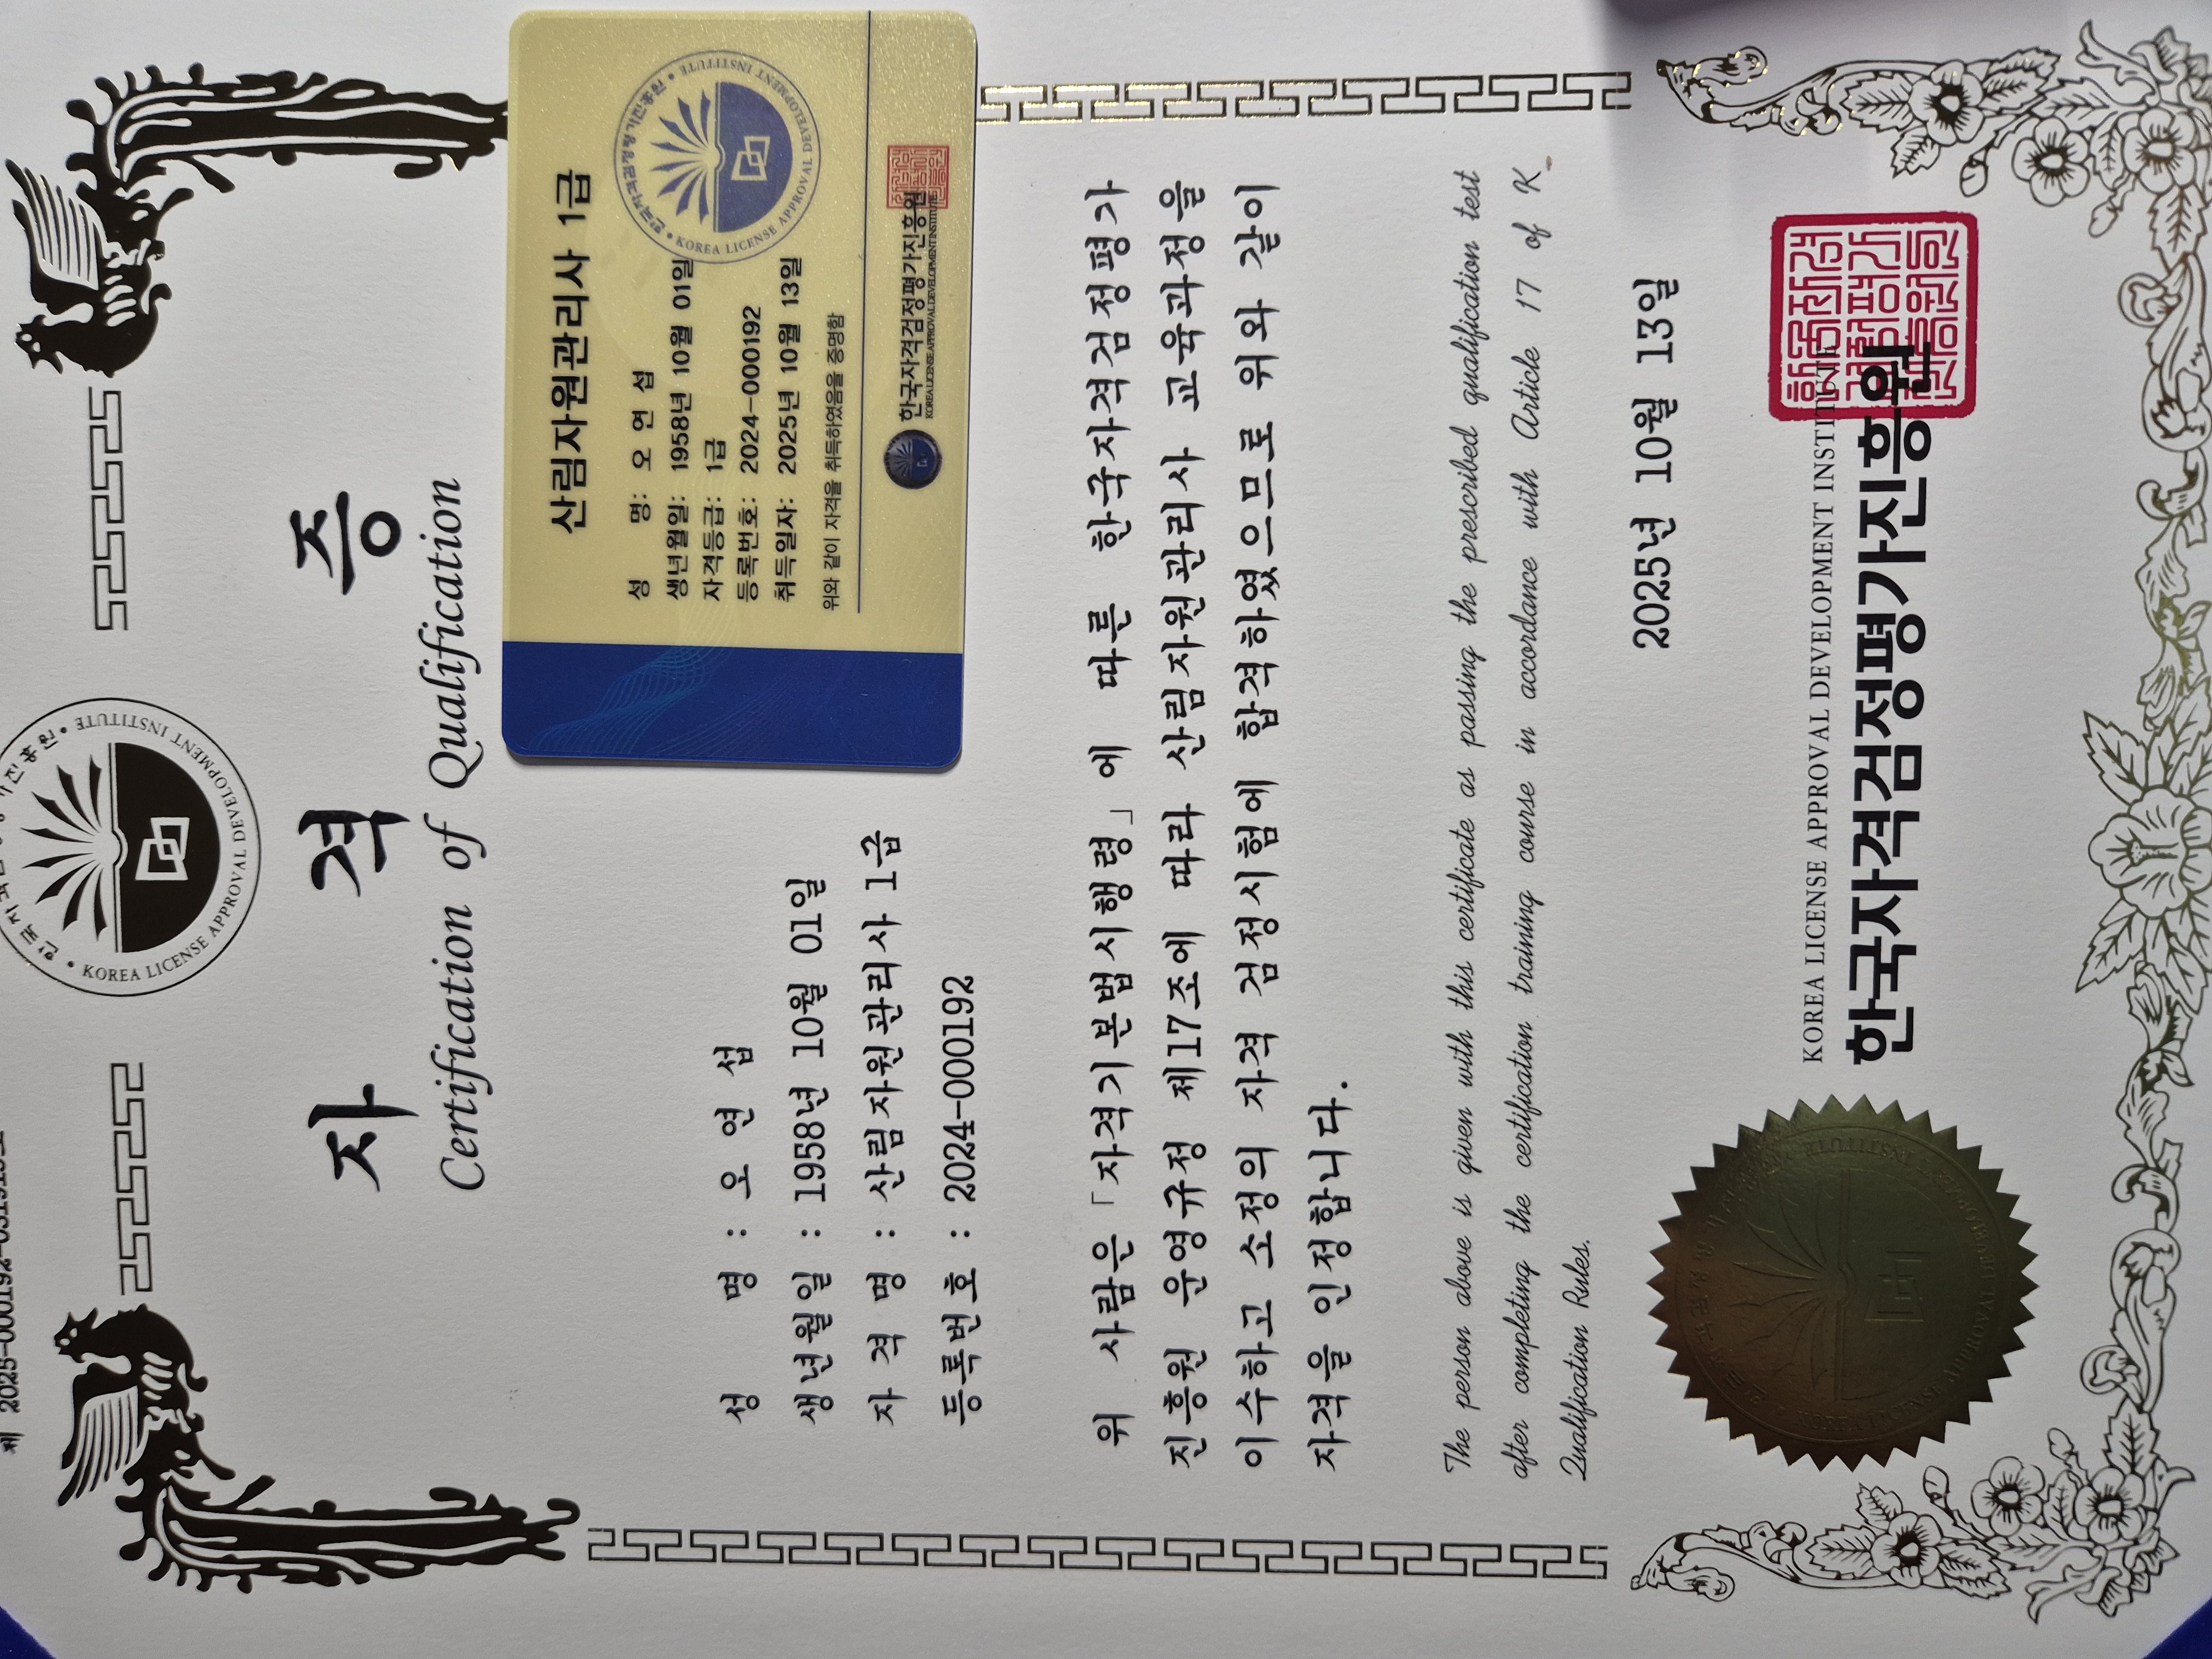 제 2025-000192-
KOREA LICENSE APPROVAL DEVELOPMENT INSTITUTE
자 격 증
Certification of Qualification
산림자원관리사 1급
성 명: 오 연 섭
생년월일: 1958년 10월 01일
자격등급: 1급
등록번호: 2024-000192
취득일자: 2025년 10월 13일
위와 같이 자격을 취득하였음을 증명함
한국자격검정평가진흥원
KOREA LICENSE APPROVAL DEVELOPMENT INSTITUTE
한국자격검정평가진흥원 • KOREA LICENSE APPROVAL DEVELOPMENT INSTITUTE •
성 명 : 오 연 섭
생년월일 : 1958년 10월 01일
자 격 명 : 산림자원관리사 1급
등록번호 : 2024-000192
위 사람은 「자격기본법시행령」에 따른 한국자격검정평가
진흥원 운영규정 제17조에 따라 산림자원관리사 교육과정을
이수하고 소정의 자격 검정시험에 합격하였으므로 위와 같이
자격을 인정합니다.
The person above is given with this certificate as passing the prescribed qualification test
after completing the certification training course in accordance with Article 17 of K_
Qualification Rules.
2025년 10월 13일
KOREA LICENSE APPROVAL DEVELOPMENT INSTITUTE
한국자격검정평가진흥원